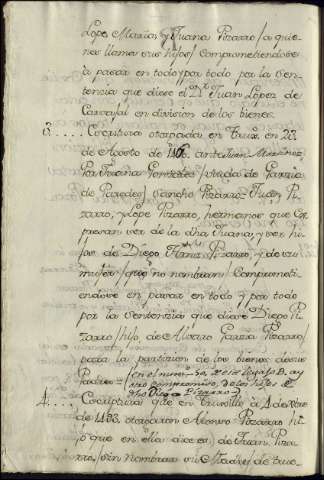 Lope, Maria, y Juana Pizarro /a quie-
nes llama sus hijos/ comprometiendose
à pasar en todo y por todo por la Sen-
tencia que diese el D.r Juan Lopez de
Carvajal en division de los bienes.
3.... Escritura otorgada en Trux. en 27
de Agosto de ante Juan Martinez
por Juana Gonzalez /viuda de Garcia
de Paredes/ Sancho Pizarro = Juan Pi-
zarro, y Lope Pizarro, hermanos que ex-
presan ser de la dha Juana, y ser hi-
jos de Diego Hernz Pizarro, y de su
muger /que no nombran/ comprometi-
endose en pasar en todo y por todo
por la Sentenzia que diese Diego Pi-
zarro /hijo de Alvaro Garcia Pizarro/
para la particion de los bienes de sus
Padres = /en el num.o 50, de este legajo B. ay
otro compromiso, de los hijos de
dho Diego Pizarro =/
4.... Escritura que en Truxillo à 4 de
de otorgaron Alonso Pizarro hi-
jo que en ella dice es, de Juan Piza-
rro, /sin nombrar su Madre/ de true-